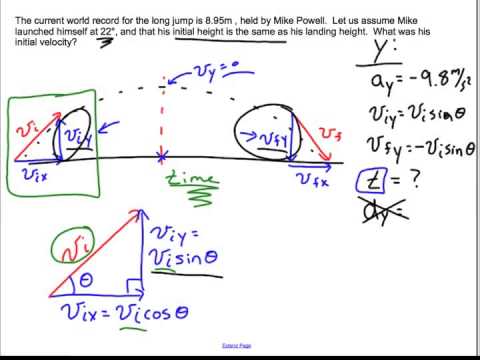 The current world record for the long jump is 8.95m , held by Mike Powell. Let us assume Mike
launched himself at 22°, and that his initial height is the same as his landing height. What was his
initial velocity?
y:
a_y = -9.8 m/s²
v_iy = v_i sinθ
v_fy = -v_i sinθ
t = ?
d_y =
v_y = 0
v_i
v_iy
v_ix
v_fy
v_f
v_fx
time
v_i
θ
v_iy =
v_i sinθ
v_ix = v_i cosθ
Extend Page